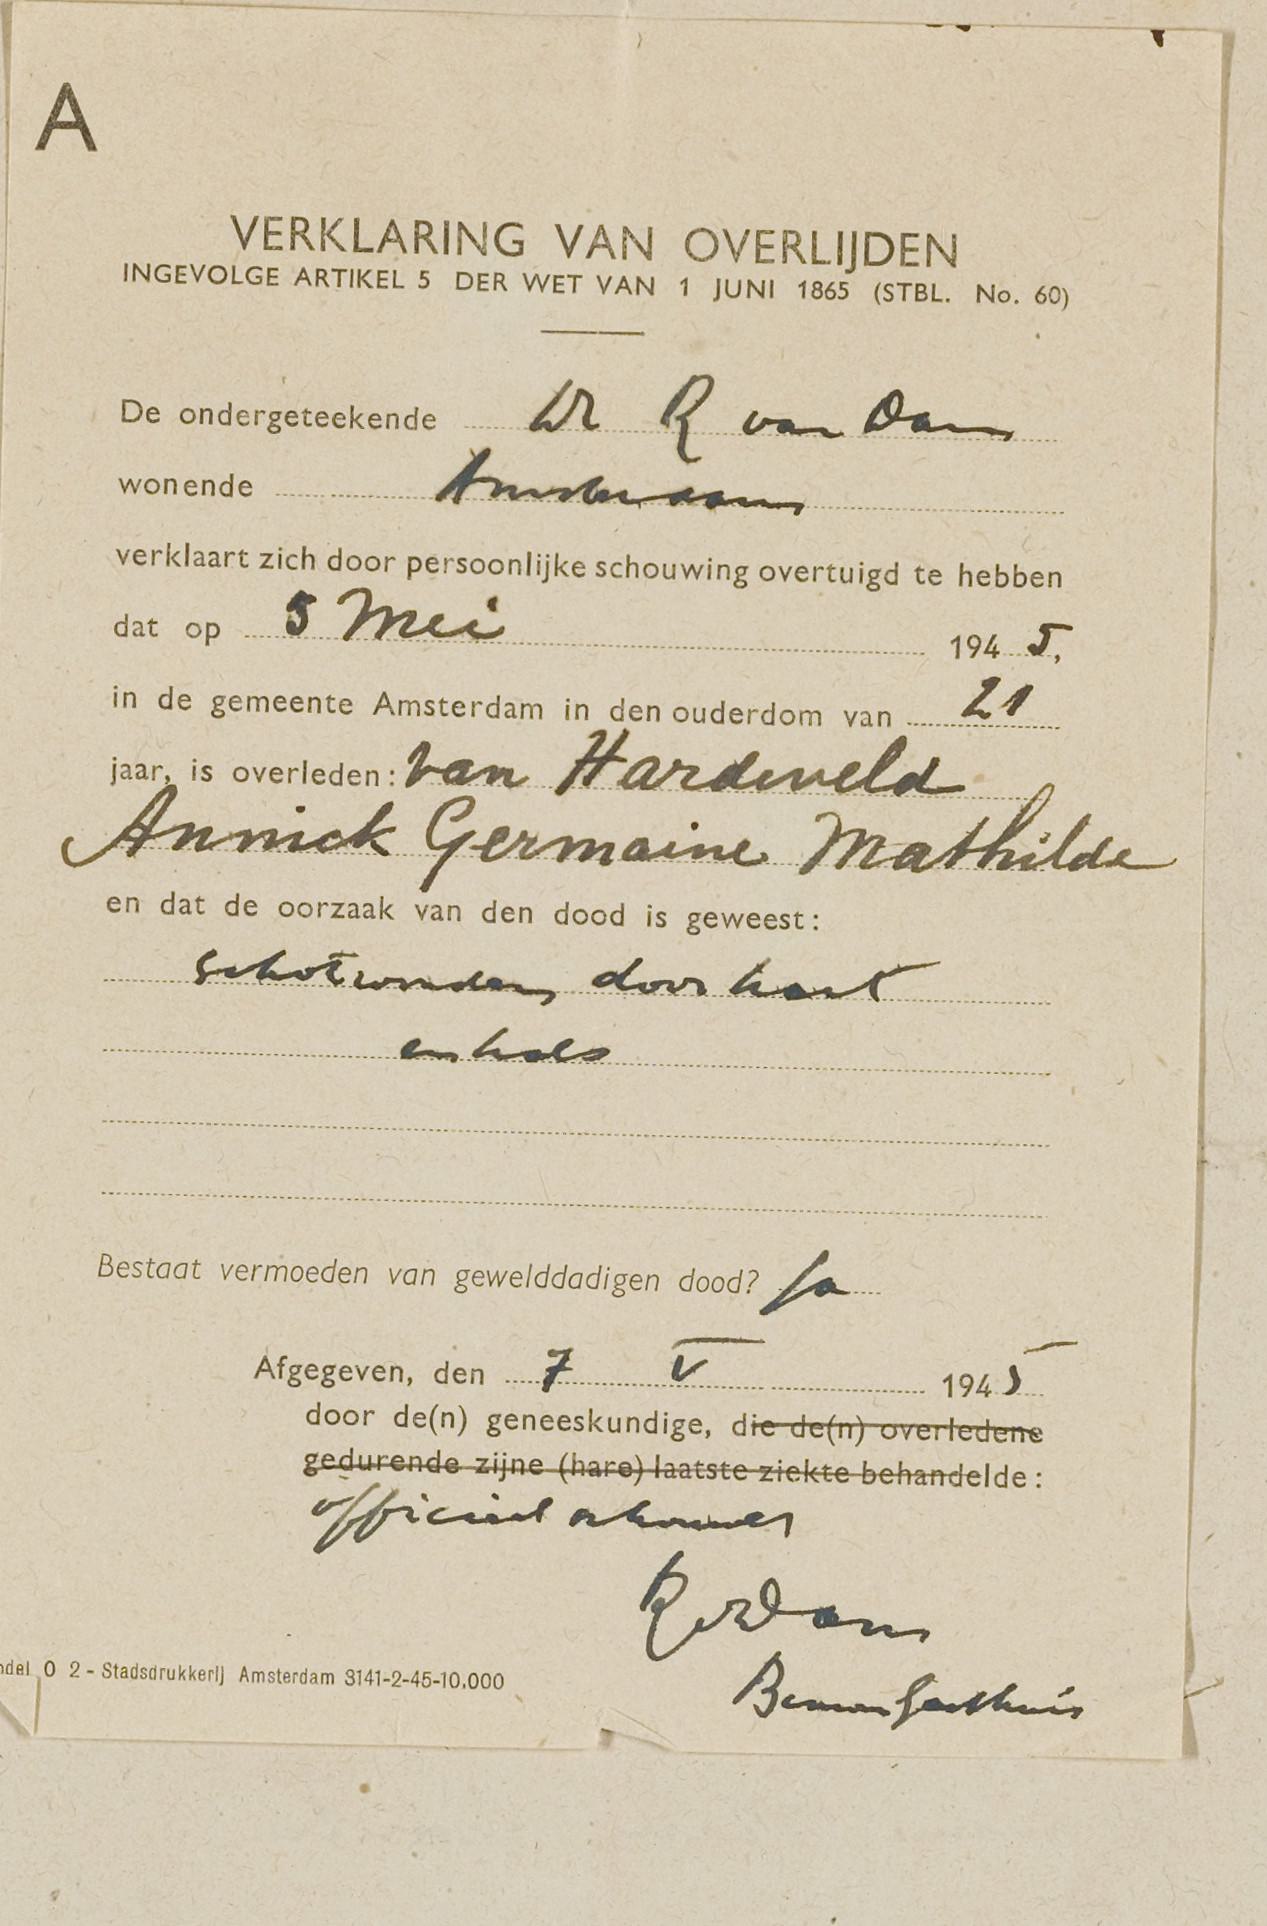 A
VERKLARING VAN OVERLIJDEN
INGEVOLGE ARTIKEL 5 DER WET VAN 1 JUNI 1865 (STBL. No. 60)
De ondergeteekende Dr R van Dam
wonende Amsterdam
verklaart zich door persoonlijke schouwing overtuigd te hebben
dat op 5 Mei 1945,
in de gemeente Amsterdam in den ouderdom van 21
jaar, is overleden: van Hardeveld
Annick Germaine Mathilde
en dat de oorzaak van den dood is geweest:
schotwonden door hart
en hals
Bestaat vermoeden van gewelddadigen dood? Ja
Afgegeven, den 7 V 1945
door de(n) geneeskundige, die de(n) overledene
gedurende zijne (hare) laatste ziekte behandelde:
officieel schouwer
RvDam
Binnen Gasthuis
ndel O 2 - Stadsdrukkerij Amsterdam 3141-2-45-10.000